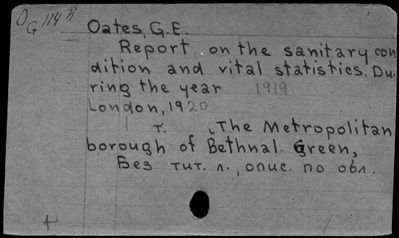 Oates, G.E.
Report on the sanitary con
dition and vital statistics. Du-
ring the year 1919
London, 1920
т. The Metropolitan
borough of Bethnal Green,
Без тит. л., опис. по обл.